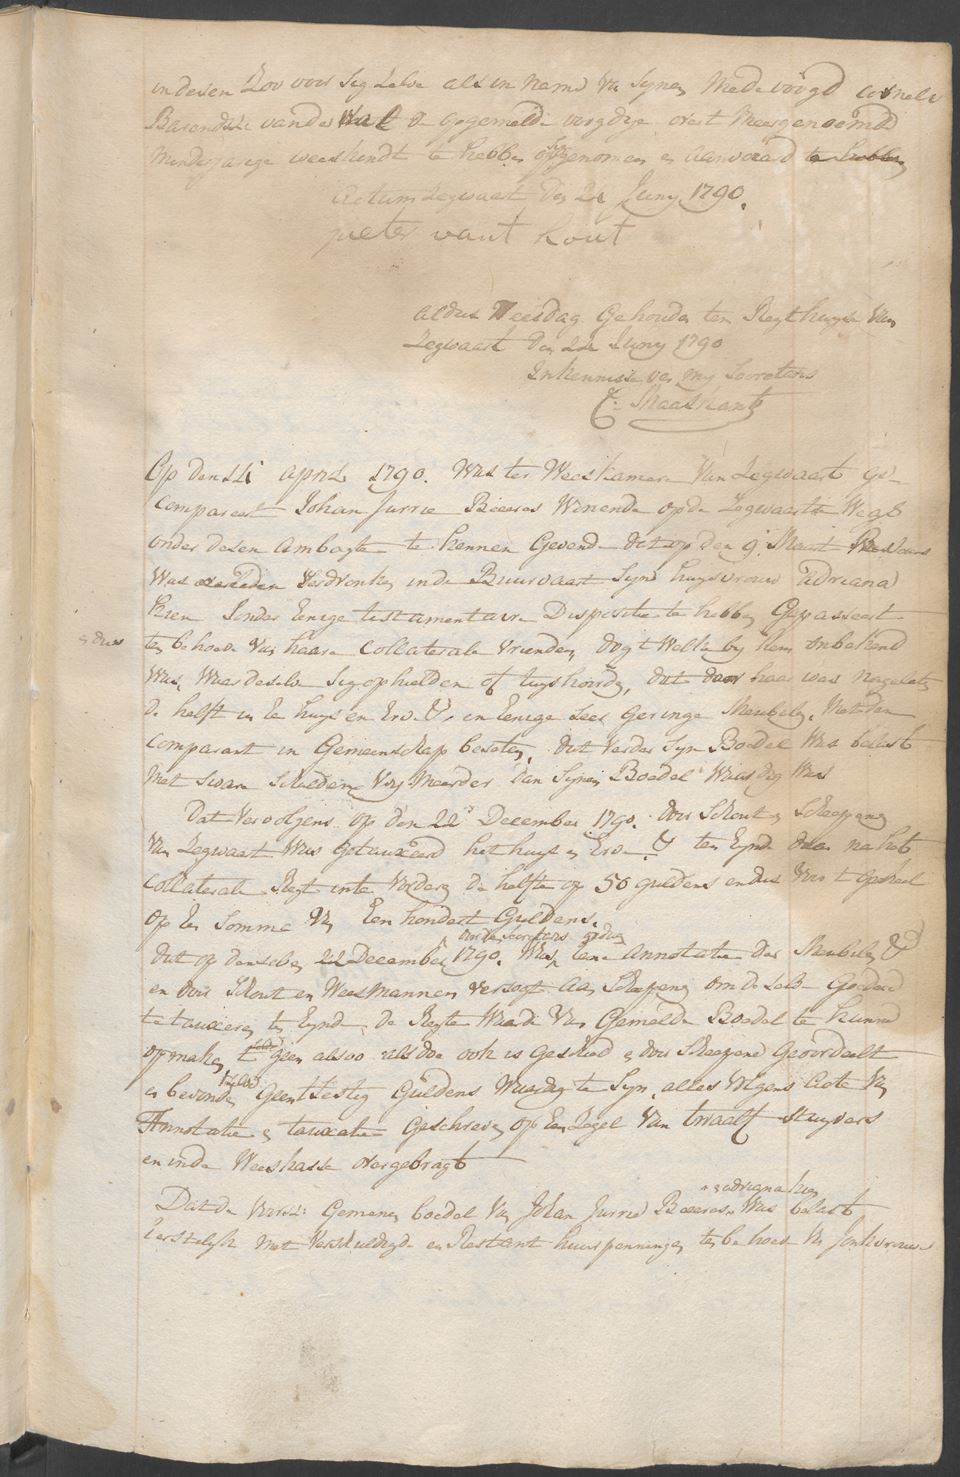 in desen Zoo voor Sig Zelve als in Name van Synen Mede voogd Cornelis
Barendse vander Wal de opgemelde voogdije over Meergenoemde
Minderjarige weeskindt te hebben opgenomen en Aanvaard te hebben
Actum Zegwaart den 21 Juny 1790.
pieter vant hout
aldus Weesdag Gehouden ten Regthuyse van
Zegwaart den Juny 1790
In kennisse van my Secretaris
Maaskant
Op den april 1790. Was ter Weeskamere Van Zegwaart ge-
compareert Johan Jurrie Wonende op de Zegwaartse Weg
onder desen Ambagte te kennen Gevende dat op den 9 Maart
Was overleden Verdronken in de Buurvaart Syne huysvrouw Adriana
Sonder Eenige testamentaire Dispositie te hebben Gepasseert
en dus
ten behoeve Van haare Collaterale Vrienden, dogt Welke by hem onbekend
Was, Waar deselve Sig ophielden of tuyshoorden, dat door haar was nagelaten
de helft in Een huys en Erve &, en Eenige Seer Geringe Meubelen, Met den
Comparant in Gemeenschap beseten, dat Verder Syn Boedel Was belast
Met sware Schulden Vry Meerder dan Synen Boedel Waardig Was
Dat Vervolgens op den 22 December 1790. door Schout en Scheepenen
Van Zegwaart Was Getauxeerd het huys en Erve & ten Eynde daar na het
Collaterale Regt inte Vorderen de helfte op 50 guldens en dus Voor 't Geheel
op Een Somma Van Een hondert Guldens.
door den secretaris gedaen
Dat op denselven 22 December 1790. Was eene Annotatie der Meubelen &
en door Schout en Weesmannen versogt aan Schepenen om deselve Goederen
te tauxeren ten Eynde de Regte Waarde Van Gemelde Boedel te kunnen
opmaken geen alsoo alsdoe ook is Geschied en door Scheepene Geoordeelt
en bevonden Guldens Waardig te Syn, alles Volgens Acte Van
Annotatie en tauxatie Geschreven op Een Zegel Van twaalf Stuyvers
en inde Weeskasse overgebragt
en adriana
Dat de Voors: Gemenen boedel Van Johan Jurrie Was belast
Eerstelyk Met Verschuldigde en Restant huurpenningen ten behoeve Van Jonkvrouwe